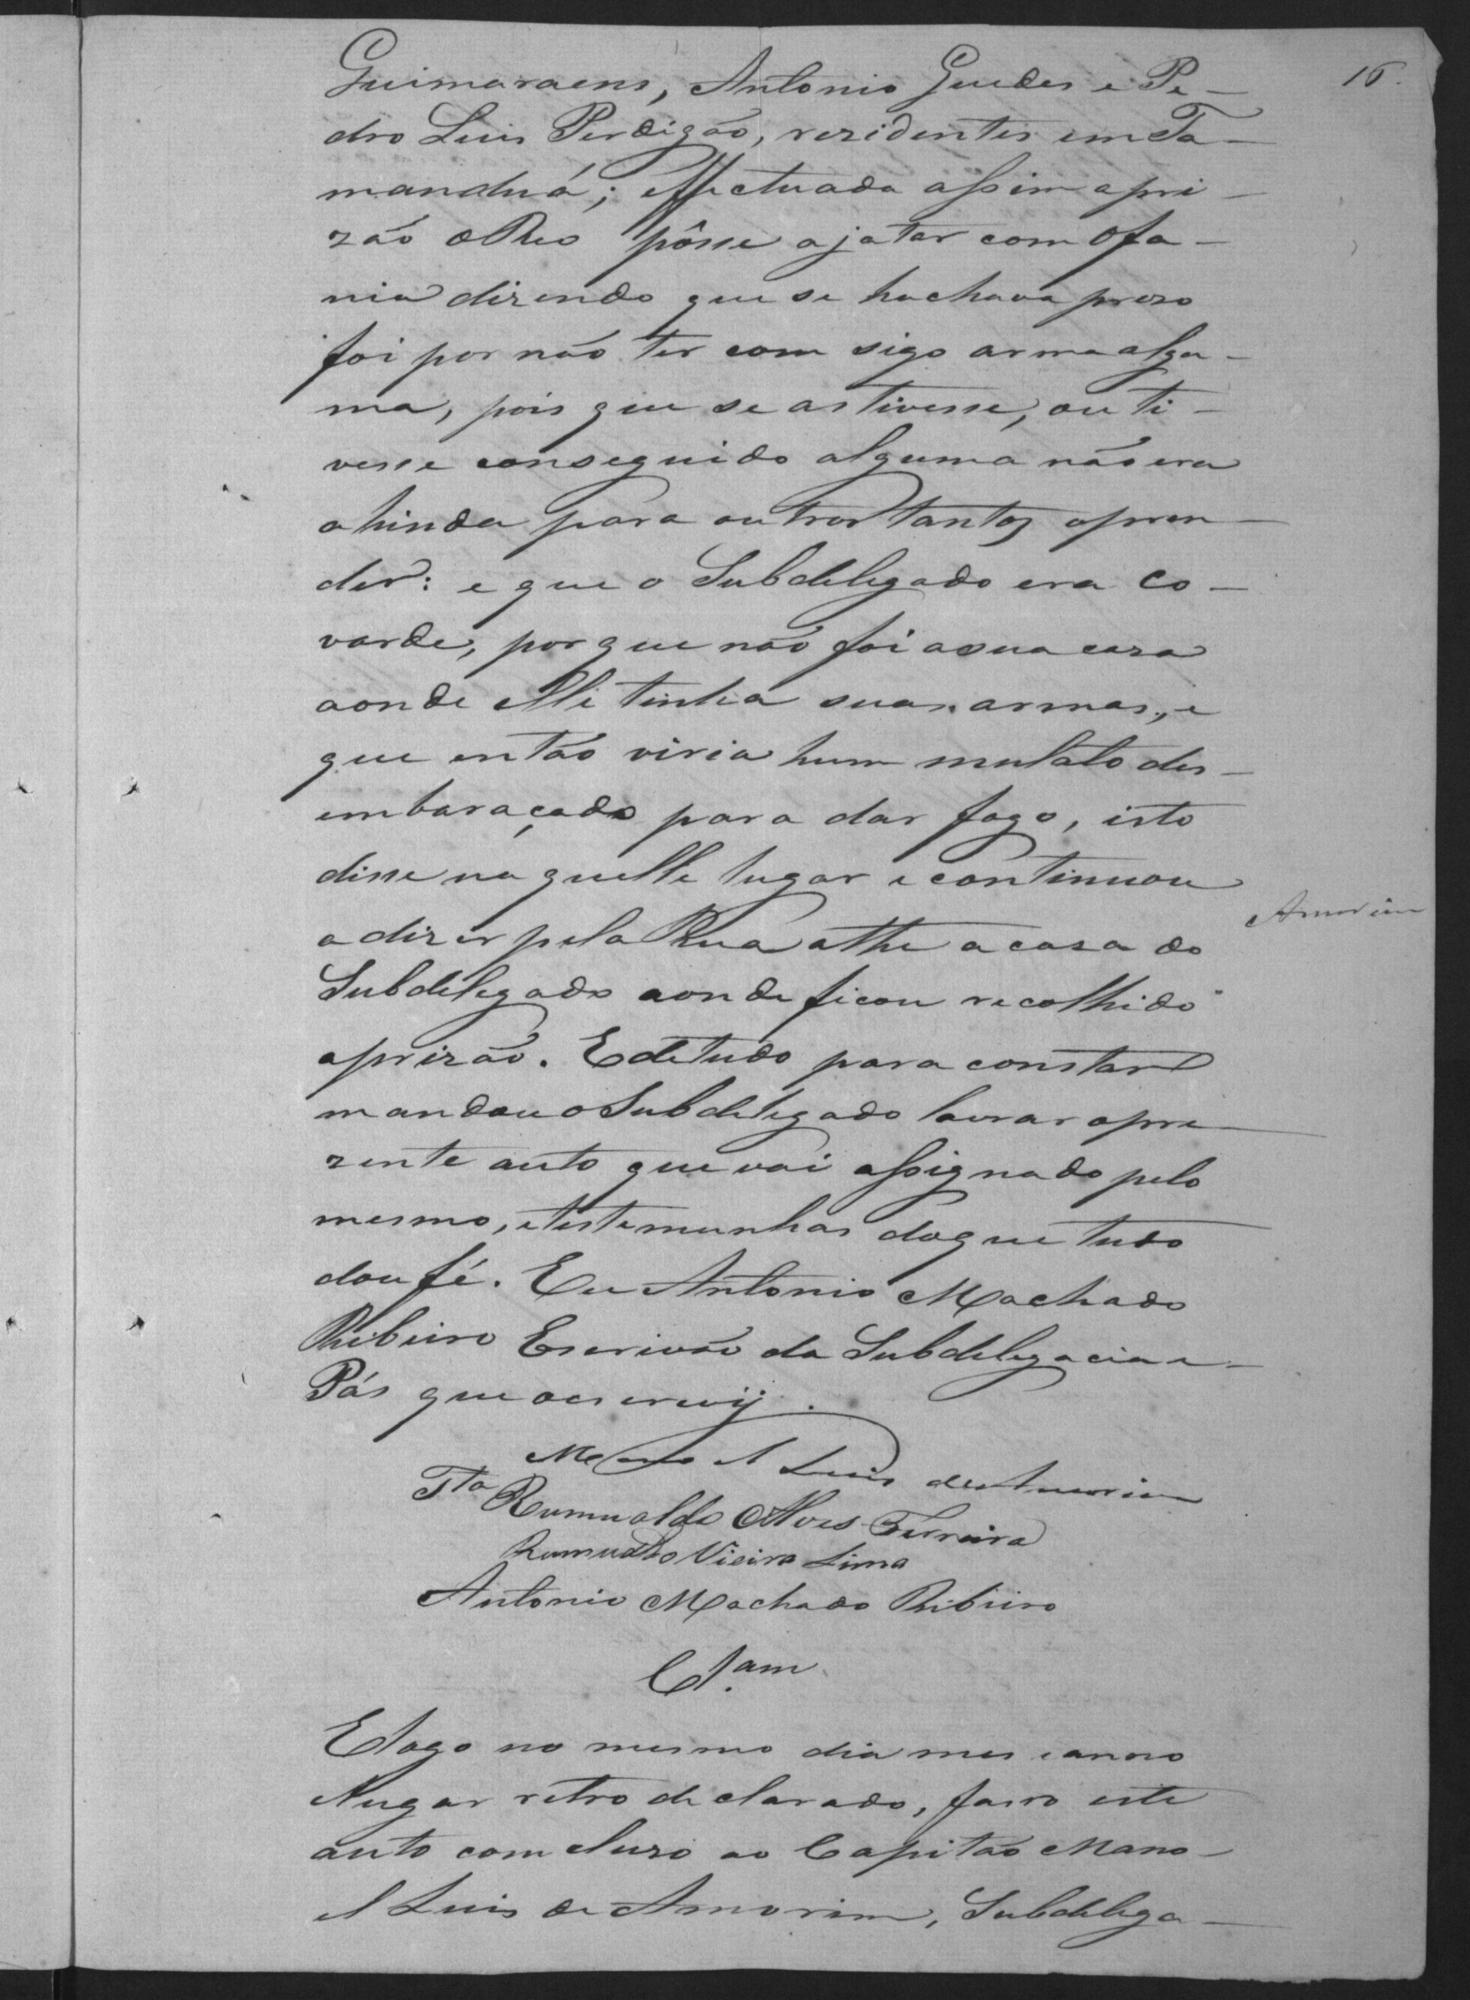 16.
Guimaraens, Antonio Guedes e Pe-
dro Luis Perdigão, rezidentes em Ta-
manduá; effectuada assim apri-
zão o Reo pôsse ajatar com Ofa-
nia dizendo que se hachava prezo
foi por não ter com sigo arma algu-
ma, pois que se astivesse, ou ti-
vesse conseguido alguma não era
ahinda para outros tantos apren-
der: e que o Subdelegado era Co-
varde, por que não foi asua caza
aonde elle tinha suas armas, e
que então viria hum mulato des-
embaraçado para dar fogo, isto
disse na quelle lugar e continuou
Amorim
a dizer pela Rua athe a casa do
Subdelegado aonde ficou recolhido
aprizão. E de tudo para constar
mandou o Subdelegado lavrar opre-
zente auto que vai assignado pelo
mesmo, e testemunhas doque tudo
dou fé. Eu Antonio Machado
Ribeiro Escrivão da Subdelegacia e
Pás que oescrevij.
Manoel Luis de Amorim
Tta Rumualdo Alves Ferreira
Rumualdo Vieira Lima
Antonio Machado Ribeiro
Clsam
E logo no mesmo dia mes e anno
elugar retro declarado, fasso este
auto comcluzo ao Capitão Mano-
el Luis de Amorim, Subdelega-